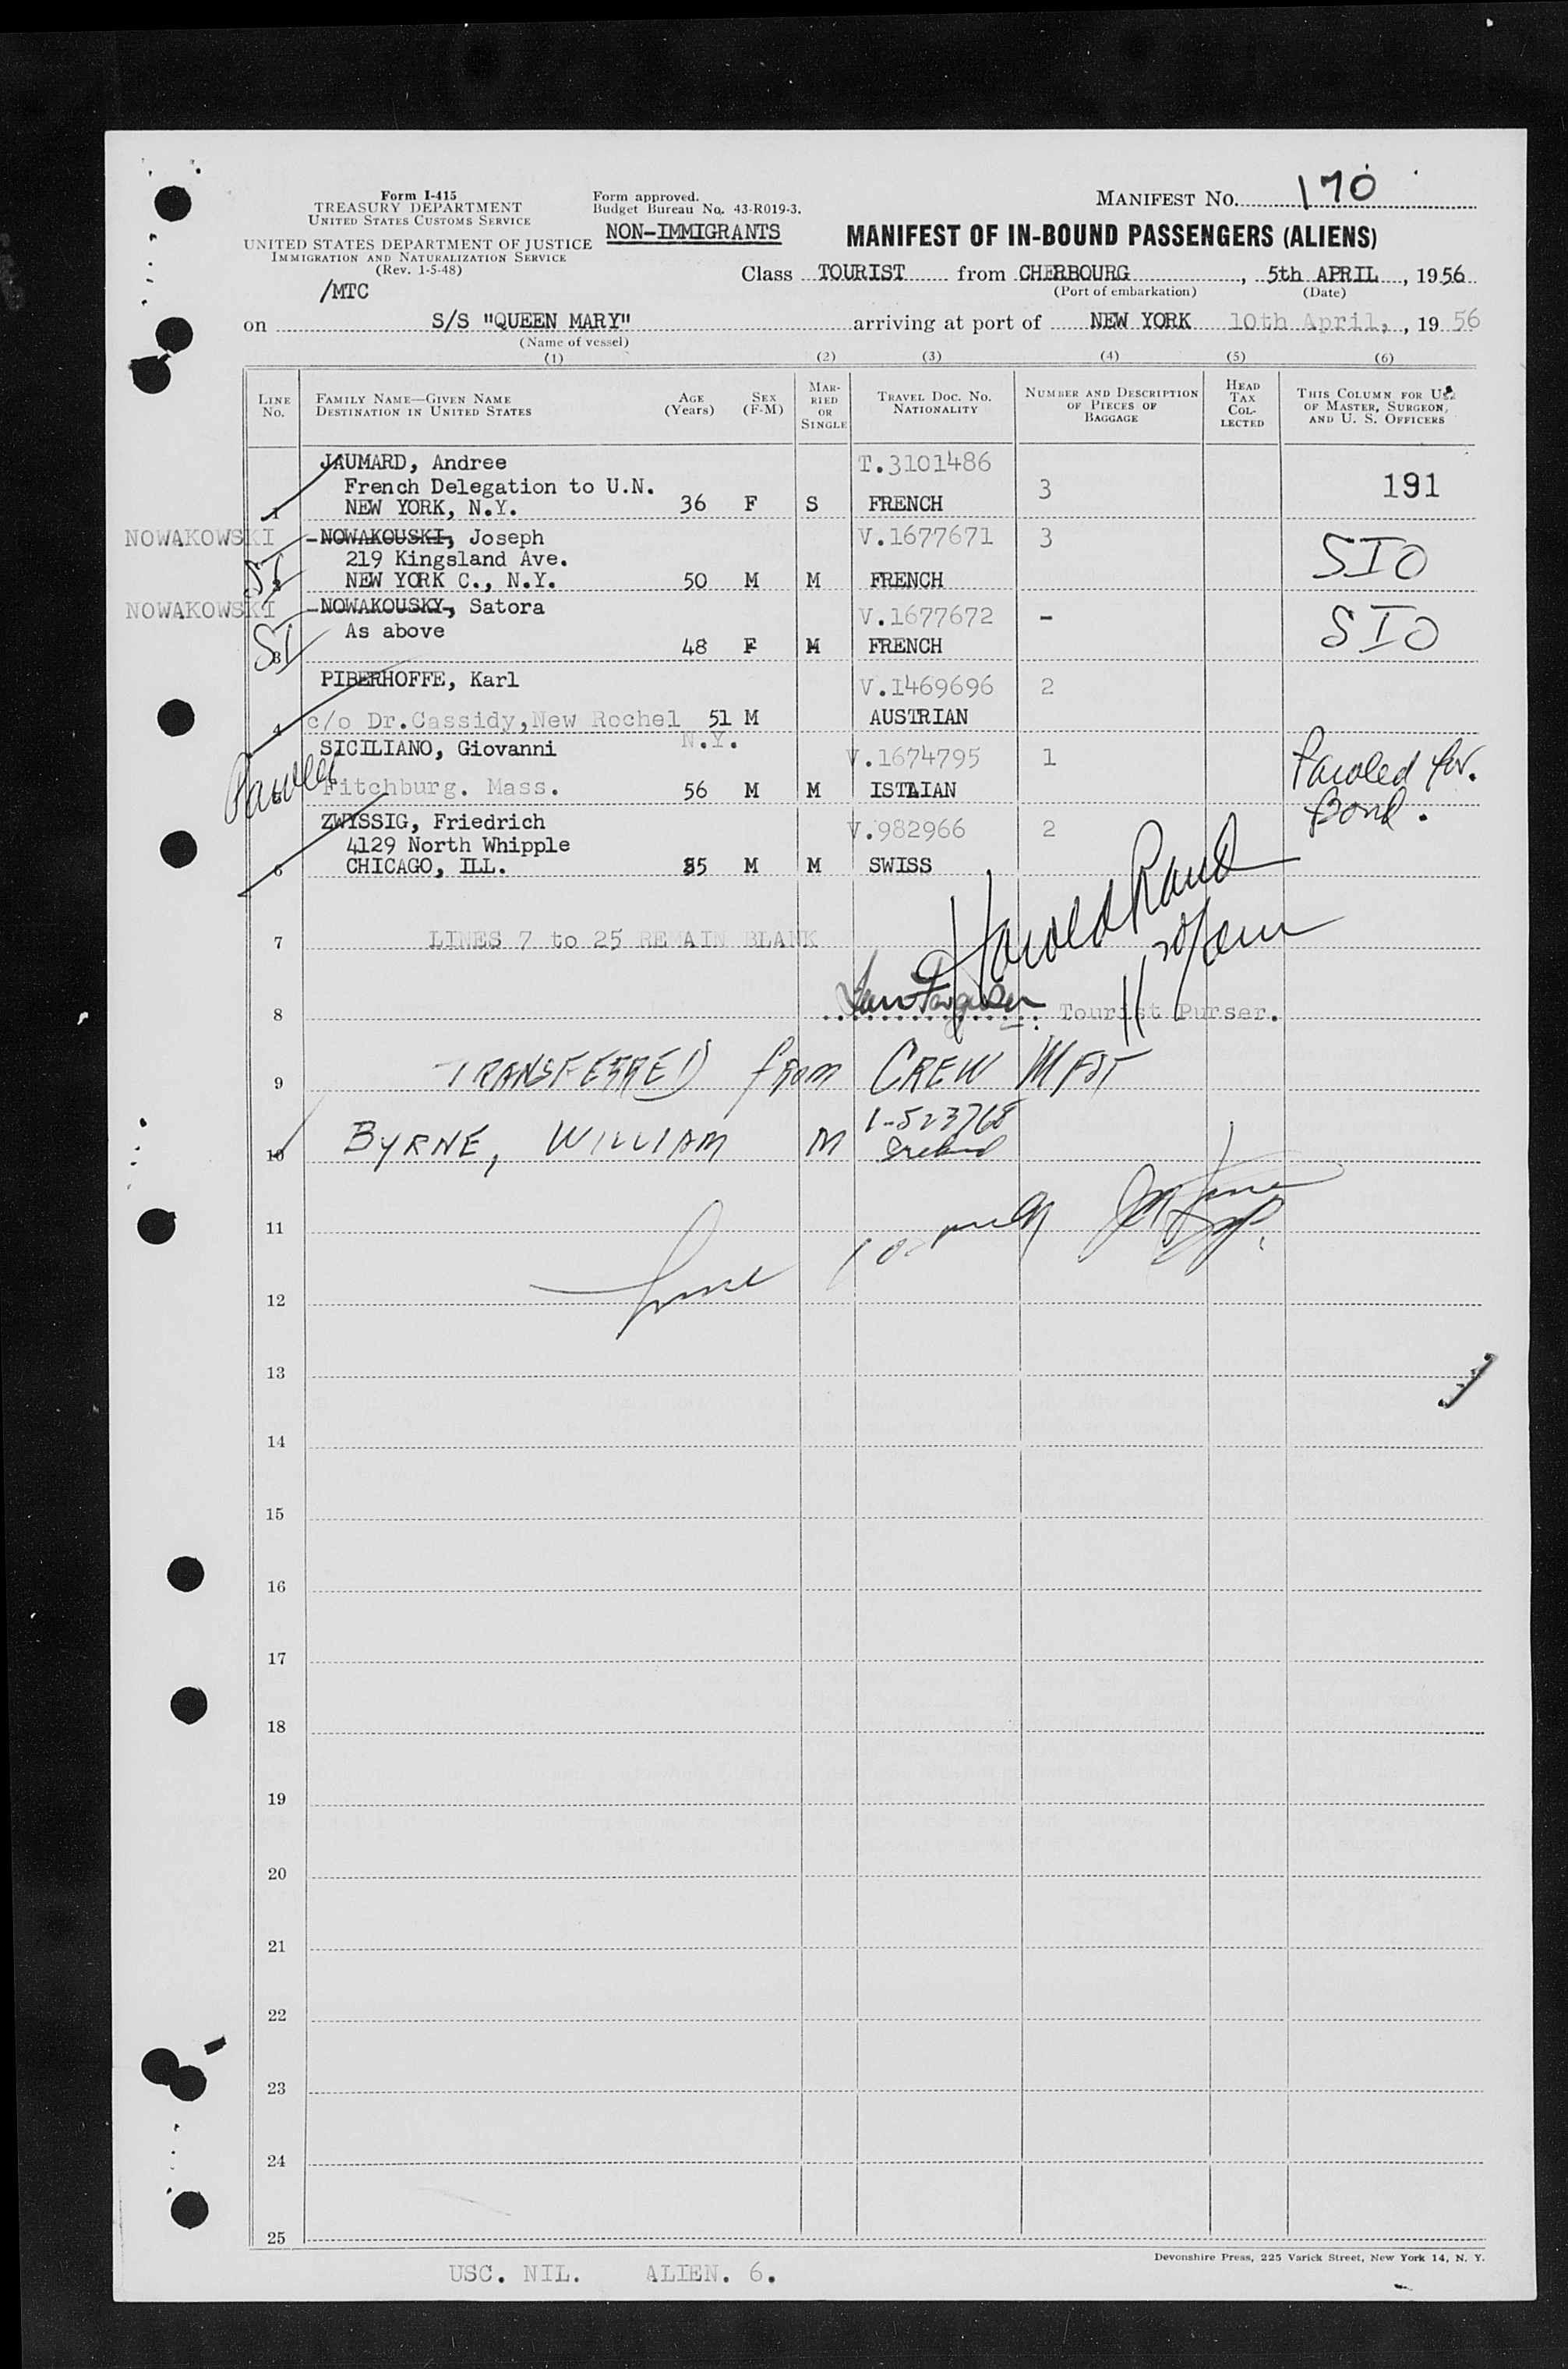 Form I-415
TREASURY DEPARTMENT
UNITED STATES CUSTOMS SERVICE
UNITED STATES DEPARTMENT OF JUSTICE
IMMIGRATION AND NATURALIZATION SERVICE
(Rev. 1-5-48)
/MTC
Form approved.
Budget Bureau No. 43-R019-3.
NON-IMMIGRANTS
MANIFEST No. 170
MANIFEST OF IN-BOUND PASSENGERS (ALIENS)
Class TOURIST from CHERBOURG, 5th APRIL, 1956
(Port of embarkation) (Date)
on S/S "QUEEN MARY" arriving at port of NEW YORK 10th April, , 19 56
(Name of vessel)
(1) (2) (3) (4) (5) (6)
LINE No. FAMILY NAME—GIVEN NAME DESTINATION IN UNITED STATES AGE (Years) SEX (F-M) MARRIED OR SINGLE TRAVEL DOC. NO. NATIONALITY NUMBER AND DESCRIPTION OF PIECES OF BAGGAGE HEAD TAX COLLECTED THIS COLUMN FOR USE OF MASTER, SURGEON, AND U. S. OFFICERS
JAUMARD, Andree T.3101486
French Delegation to U.N. 3 191
1 NEW YORK, N.Y. 36 F S FRENCH
NOWAKOWSKI -NOWAKOUSKI-, Joseph V.1677671 3
219 Kingsland Ave. SIO
SI 2 NEW YORK C., N.Y. 50 M M FRENCH
NOWAKOWSKI -NOWAKOUSKY-, Satora V.1677672 -
As above SIO
SI 3 48 F M FRENCH
PIBERHOFFE, Karl V.I469696 2
4 c/o Dr.Cassidy,New Rochel 51 M AUSTRIAN
N.Y.
SICILIANO, Giovanni V.1674795 1 Paroled for.
Paroled Fitchburg. Mass. 56 M M ISTALIAN Bond.
ZWYSSIG, Friedrich V.982966 2
4129 North Whipple
6 CHICAGO, ILL. 35 M M SWISS
Harold Rand
7 LINES 7 to 25 REMAIN BLANK
8 Tourist Purser.
9 TRANSFERRED from CREW MFST
1-523768
10 BYRNE, WILLIAM M Ireland
11
12
13
14
15
16
17
18
19
20
21
22
23
24
25
Devonshire Press, 225 Varick Street, New York 14, N. Y.
USC. NIL. ALIEN. 6.